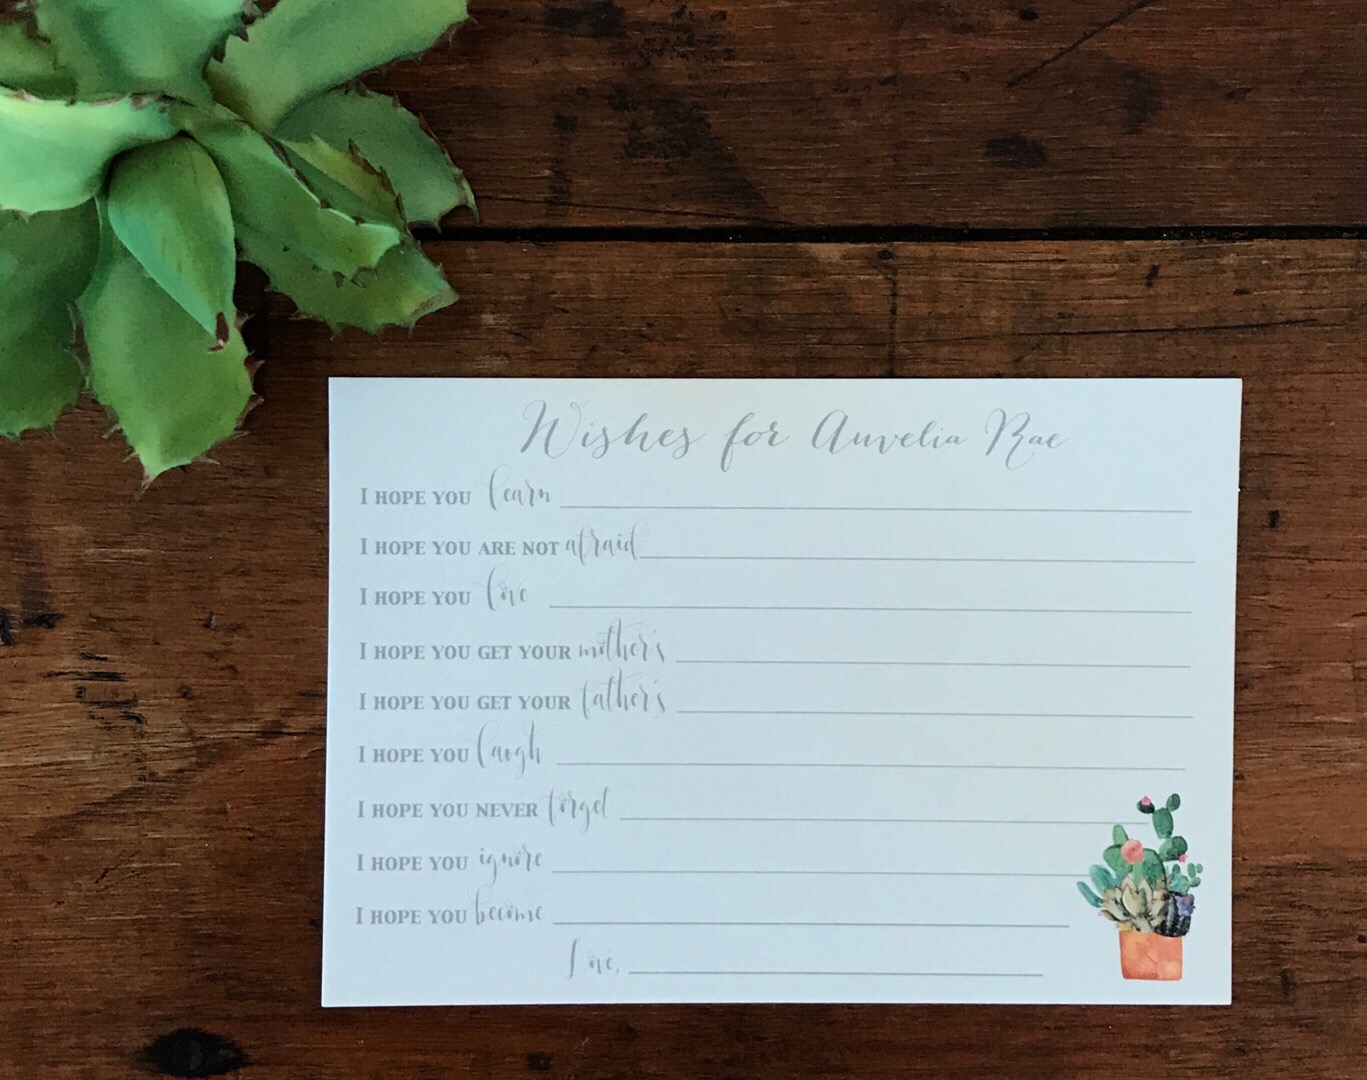 Wishes for Auvelia Rae
I HOPE YOU learn
I HOPE YOU ARE NOT afraid
I HOPE YOU love
I HOPE YOU GET YOUR mother's
I HOPE YOU GET YOUR father's
I HOPE YOU laugh
I HOPE YOU NEVER forget
I HOPE YOU ignore
I HOPE YOU become
Love,